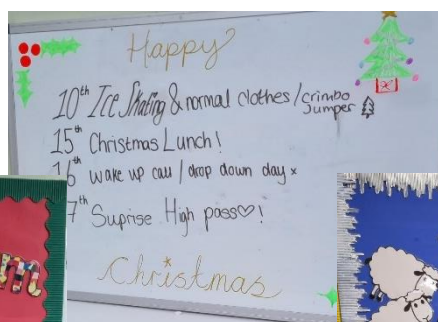 Happy
10th Ice Skating & normal clothes / crimbo
Jumper
15th Christmas Lunch!
16th wake up call / drop down day x
7th Suprise High pass♡!
Christmas
m